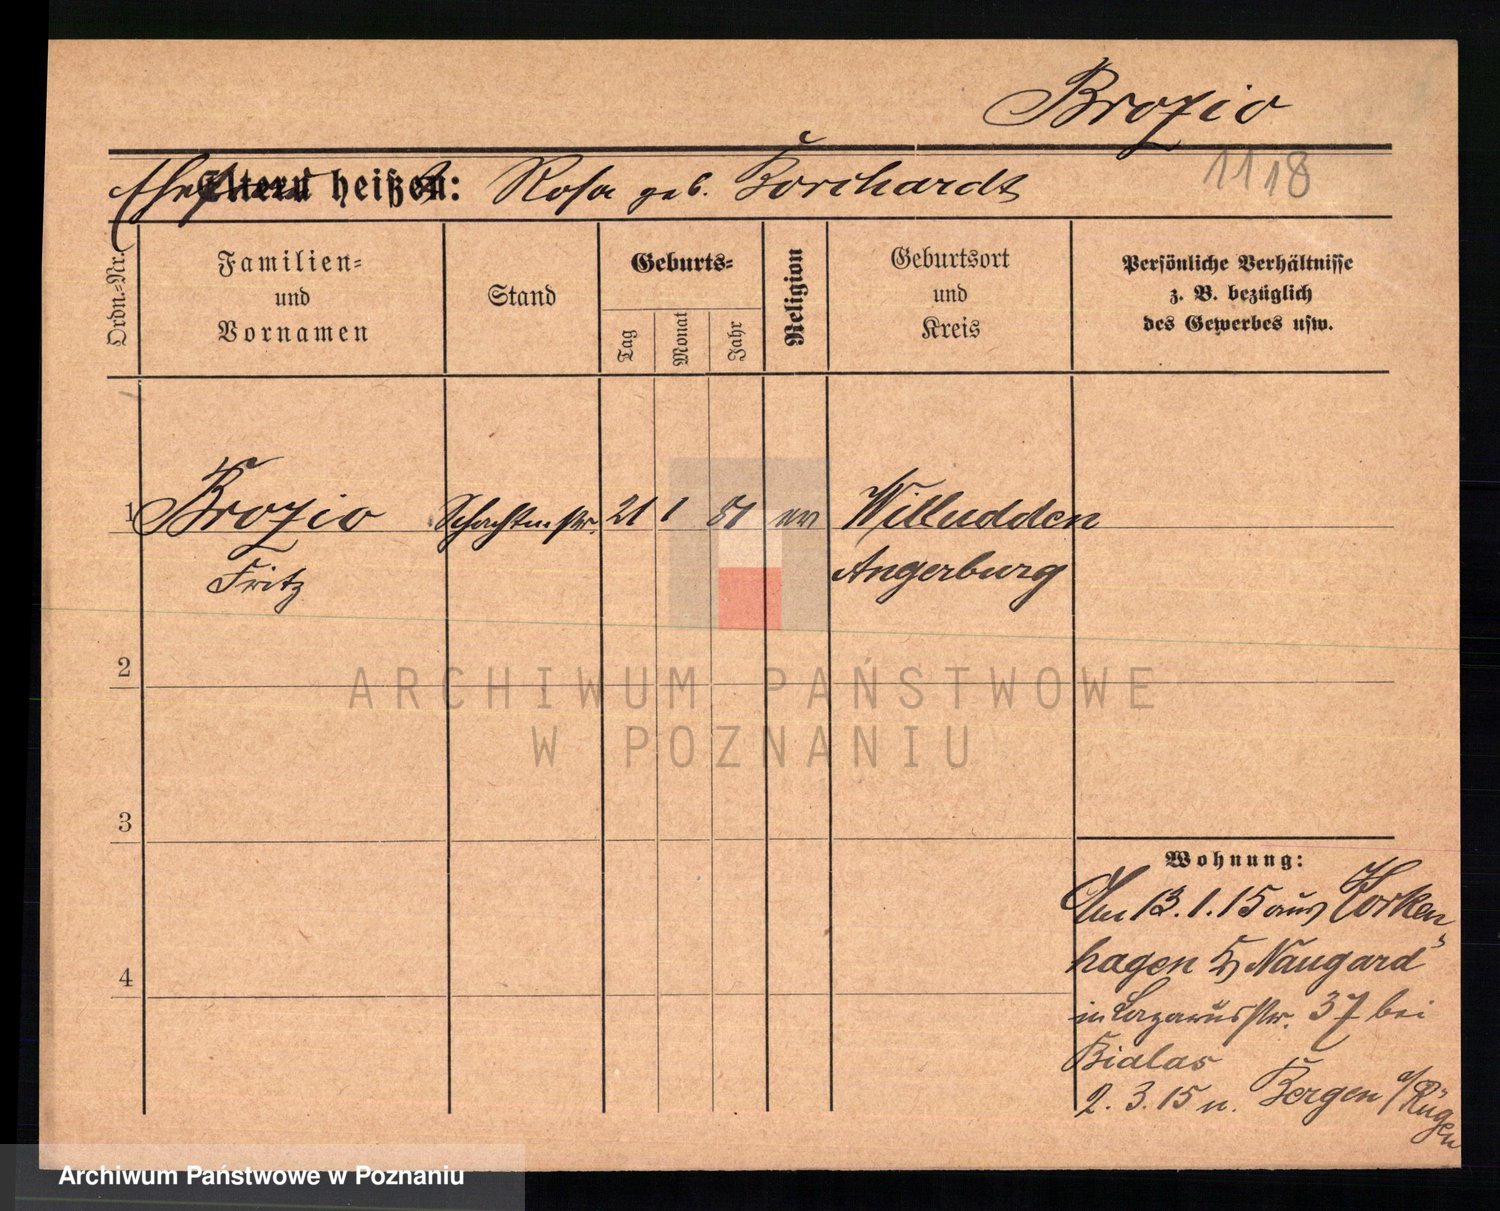 Brozio
1118
Eltern heißen: Rosa geb. Borchardt
Ordn.-Nr.
Familien-
und
Vornamen
Stand
Geburts-
Tag
Monat
Jahr
Religion
Geburtsort
und
Kreis
Persönliche Verhältnisse
z. B. bezüglich
des Gewerbes usw.
1 Brozio Schachtmstr. 21 1 51 ev Willudden
Fritz Angerburg
2
ARCHIWUM PAŃSTWOWE
W POZNANIU
3
Wohnung:
Am 13.1.15 aus
hagen Naugard
4
in Lazarusstr. 37 bei
Bialas
2.3.15 n. Bergen a/Rügen
Archiwum Państwowe w Poznaniu